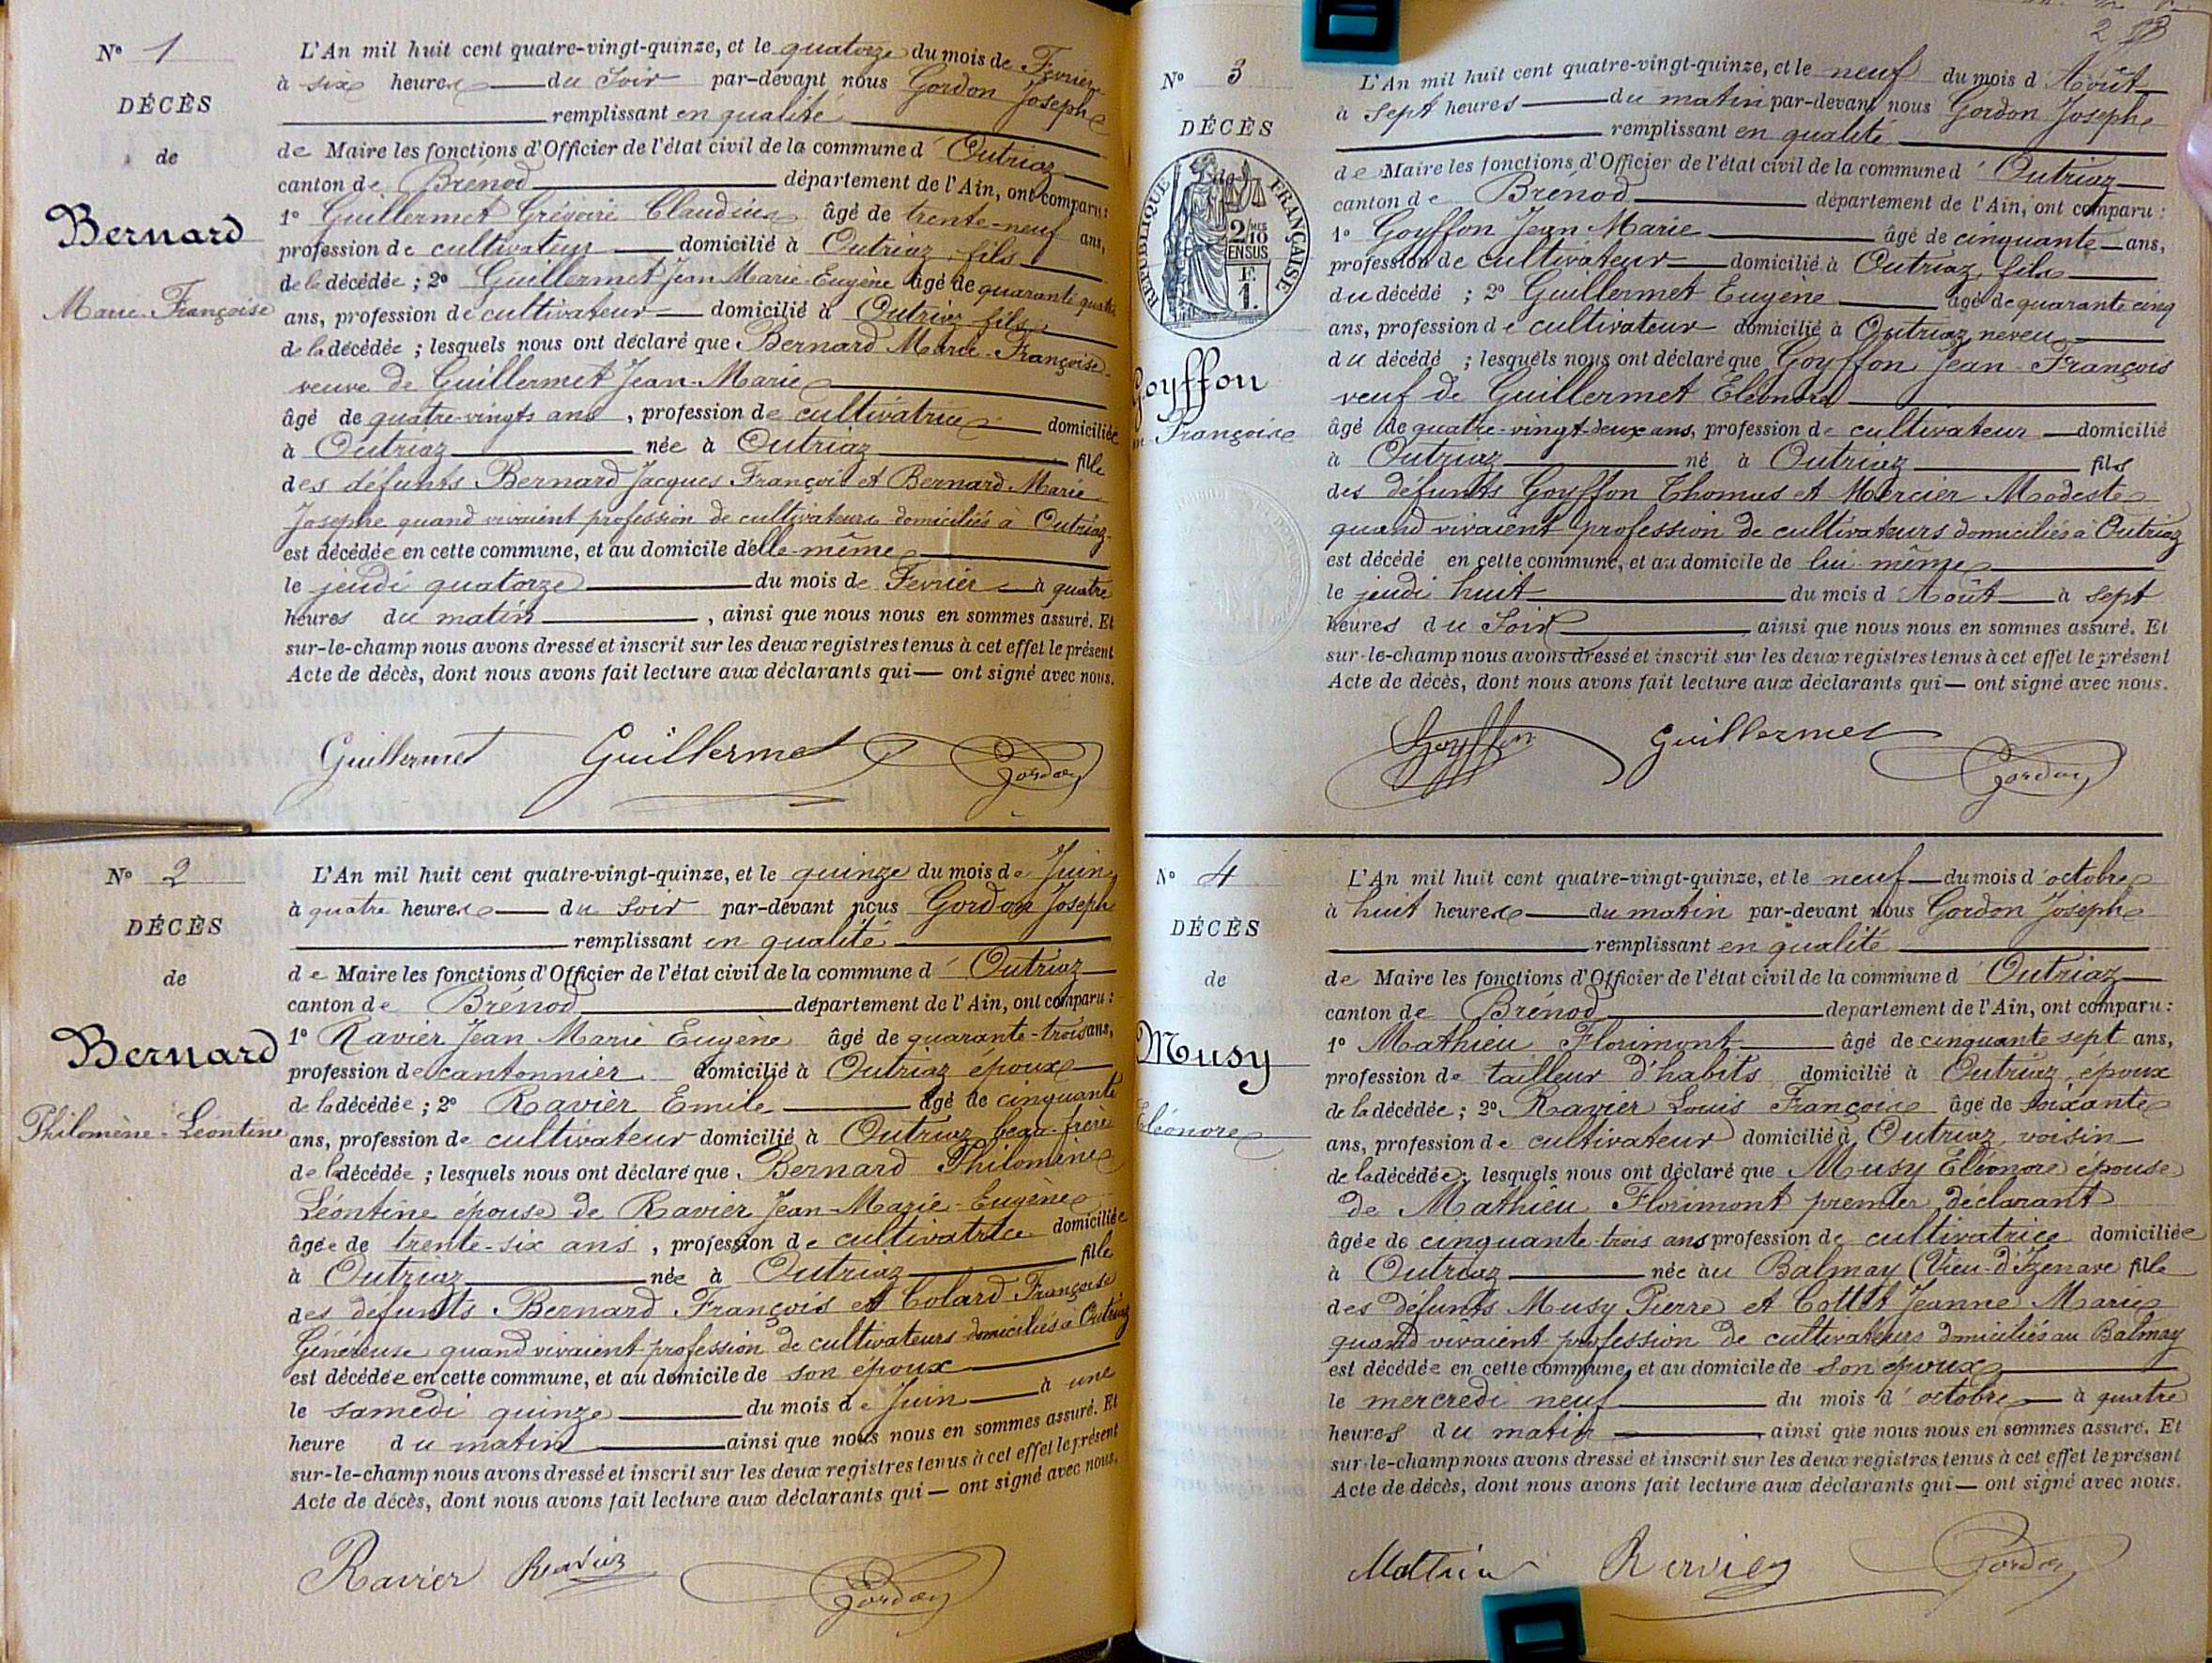 N° 1
DÉCÈS
de
Bernard
Marie-Françoise
L'An mil huit cent quatre-vingt-quinze, et le quatorze du mois de Février
à six heures du Soir par-devant nous Gordon Joseph
remplissant en qualité
de Maire les fonctions d'Officier de l'état civil de la commune d'Outriaz
canton de Brénod département de l'Ain, ont comparu :
1° Guillermet Grégoire Claudius âgé de trente-neuf ans,
profession de cultivateur domicilié à Outriaz, fils
de la décédée ; 2° Guillermet Jean Marie-Eugène âgé de quarante quatre
ans, profession de cultivateur domicilié à Outriaz fils
de la décédée ; lesquels nous ont déclaré que Bernard Marie-Françoise
veuve de Guillermet Jean-Marie
âgé de quatre-vingts ans, profession de cultivatrice domiciliée
à Outriaz née à Outriaz fille
des défunts Bernard Jacques François et Bernard Marie
Josephe quand vivaient profession de cultivateurs domiciliés à Outriaz
est décédée en cette commune, et au domicile d'elle-même
le jeudi quatorze du mois de Février à quatre
heures du matin, ainsi que nous nous en sommes assuré. Et
sur-le-champ nous avons dressé et inscrit sur les deux registres tenus à cet effet le présent
Acte de décès, dont nous avons fait lecture aux déclarants qui — ont signé avec nous.
Guillermet Guillermet Gordon
N° 2
DÉCÈS
de
Bernard
Philomène-Léontine
L'An mil huit cent quatre-vingt-quinze, et le quinze du mois de Juin
à quatre heures du Soir par-devant nous Gordon Joseph
remplissant en qualité
de Maire les fonctions d'Officier de l'état civil de la commune d'Outriaz
canton de Brénod département de l'Ain, ont comparu :
1° Ravier Jean Marie Eugène âgé de quarante-trois ans,
profession de cantonnier domicilié à Outriaz époux
de la décédée ; 2° Ravier Emile âgé de cinquante
ans, profession de cultivateur domicilié à Outriaz, beau-frère
de la décédée ; lesquels nous ont déclaré que Bernard Philomène
Léontine épouse de Ravier Jean-Marie-Eugène
âgée de trente-six ans, profession de cultivatrice domiciliée
à Outriaz née à Outriaz fille
des défunts Bernard François et Colard Françoise
Généreuse quand vivaient profession de cultivateurs domiciliés à Outriaz
est décédée en cette commune, et au domicile de son époux
le samedi quinze du mois de Juin à une
heure du matin ainsi que nous nous en sommes assuré. Et
sur-le-champ nous avons dressé et inscrit sur les deux registres tenus à cet effet le présent
Acte de décès, dont nous avons fait lecture aux déclarants qui — ont signé avec nous.
Ravier Ravier Gordon
2
N° 3
DÉCÈS
de
RÉPUBLIQUE FRANÇAISE
2/10 EN SUS
F. 1.
Goyffon
Françoise
L'An mil huit cent quatre-vingt-quinze, et le neuf du mois d'Août
à sept heures du matin par-devant nous Gordon Joseph
remplissant en qualité
de Maire les fonctions d'Officier de l'état civil de la commune d'Outriaz
canton de Brénod département de l'Ain, ont comparu :
1° Goyffon Jean Marie âgé de cinquante ans,
profession de cultivateur domicilié à Outriaz, fils
du décédé ; 2° Guillermet Eugène âgé de quarante cinq
ans, profession de cultivateur domicilié à Outriaz, neveu
du décédé ; lesquels nous ont déclaré que Goyffon Jean-François
veuf de Guillermet Eléonore
âgé de quatre-vingt-deux ans, profession de cultivateur domicilié
à Outriaz né à Outriaz fils
des défunts Goyffon Thomas et Mercier Modeste
quand vivaient profession de cultivateurs domiciliés à Outriaz
est décédé en cette commune, et au domicile de lui-même
le jeudi huit du mois d'Août à sept
heures du Soir ainsi que nous nous en sommes assuré. Et
sur-le-champ nous avons dressé et inscrit sur les deux registres tenus à cet effet le présent
Acte de décès, dont nous avons fait lecture aux déclarants qui — ont signé avec nous.
Goyffon Guillermet Gordon
N° 4
DÉCÈS
de
Musy
Eléonore
L'An mil huit cent quatre-vingt-quinze, et le neuf du mois d'octobre
à huit heures du matin par-devant nous Gordon Joseph
remplissant en qualité
de Maire les fonctions d'Officier de l'état civil de la commune d'Outriaz
canton de Brénod département de l'Ain, ont comparu :
1° Mathieu Florimont âgé de cinquante sept ans,
profession de tailleur d'habits domicilié à Outriaz, époux
de la décédée ; 2° Ravier Louis François âgé de soixante
ans, profession de cultivateur domicilié à Outriaz, voisin
de la décédée ; lesquels nous ont déclaré que Musy Eléonore épouse
de Mathieu Florimont premier déclarant
âgée de cinquante-trois ans profession de cultivatrice domiciliée
à Outriaz née au Balmay (Vieu-d'Izenave) fille
des défunts Musy Pierre et Cottet Jeanne Marie
quand vivaient profession de cultivateurs domiciliés au Balmay
est décédée en cette commune, et au domicile de son époux
le mercredi neuf du mois d'octobre à quatre
heures du matin, ainsi que nous nous en sommes assuré. Et
sur-le-champ nous avons dressé et inscrit sur les deux registres tenus à cet effet le présent
Acte de décès, dont nous avons fait lecture aux déclarants qui — ont signé avec nous.
Mathieu Ravier Gordon